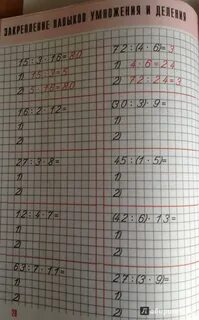 ЗАКРЕПЛЕНИЕ НАВЫКОВ УМНОЖЕНИЯ И ДЕЛЕНИЯ
15:3·16=80
1) 15:3=5
2) 5·16=80
72:(4·6)=3
1) 4·6=24
2) 72:24=3
16:2·12=
1)
2)
(30:3)·9=
1)
2)
27:3·8=
1)
2)
45:(1·5)=
1)
2)
12:4·7=
1)
2)
(42:6)·13=
1)
2)
63:7·11=
1)
2)
27:(3·9)=
1)
2)
Лабиринт